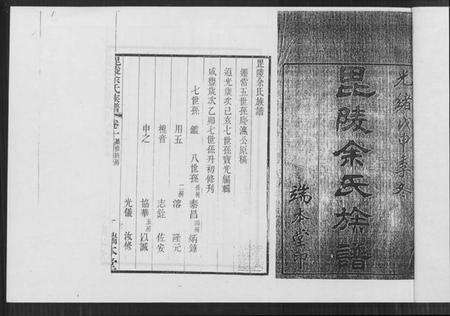 光緒戊申季冬
毘陵余氏族譜
瑞本堂印
毘陵余氏族譜
遷常五世孫陸瀛公原稿
道光歲次己亥七世孫寶光編輯
咸豐歲次乙卯七世孫升初修刊
七世孫 鑑 八世孫 秦昌
用五 溶 陞元
槐音 志銓 佐安
申之 協華 以誠
光儀 汝修
毘陵余氏族譜 卷一
瑞本堂